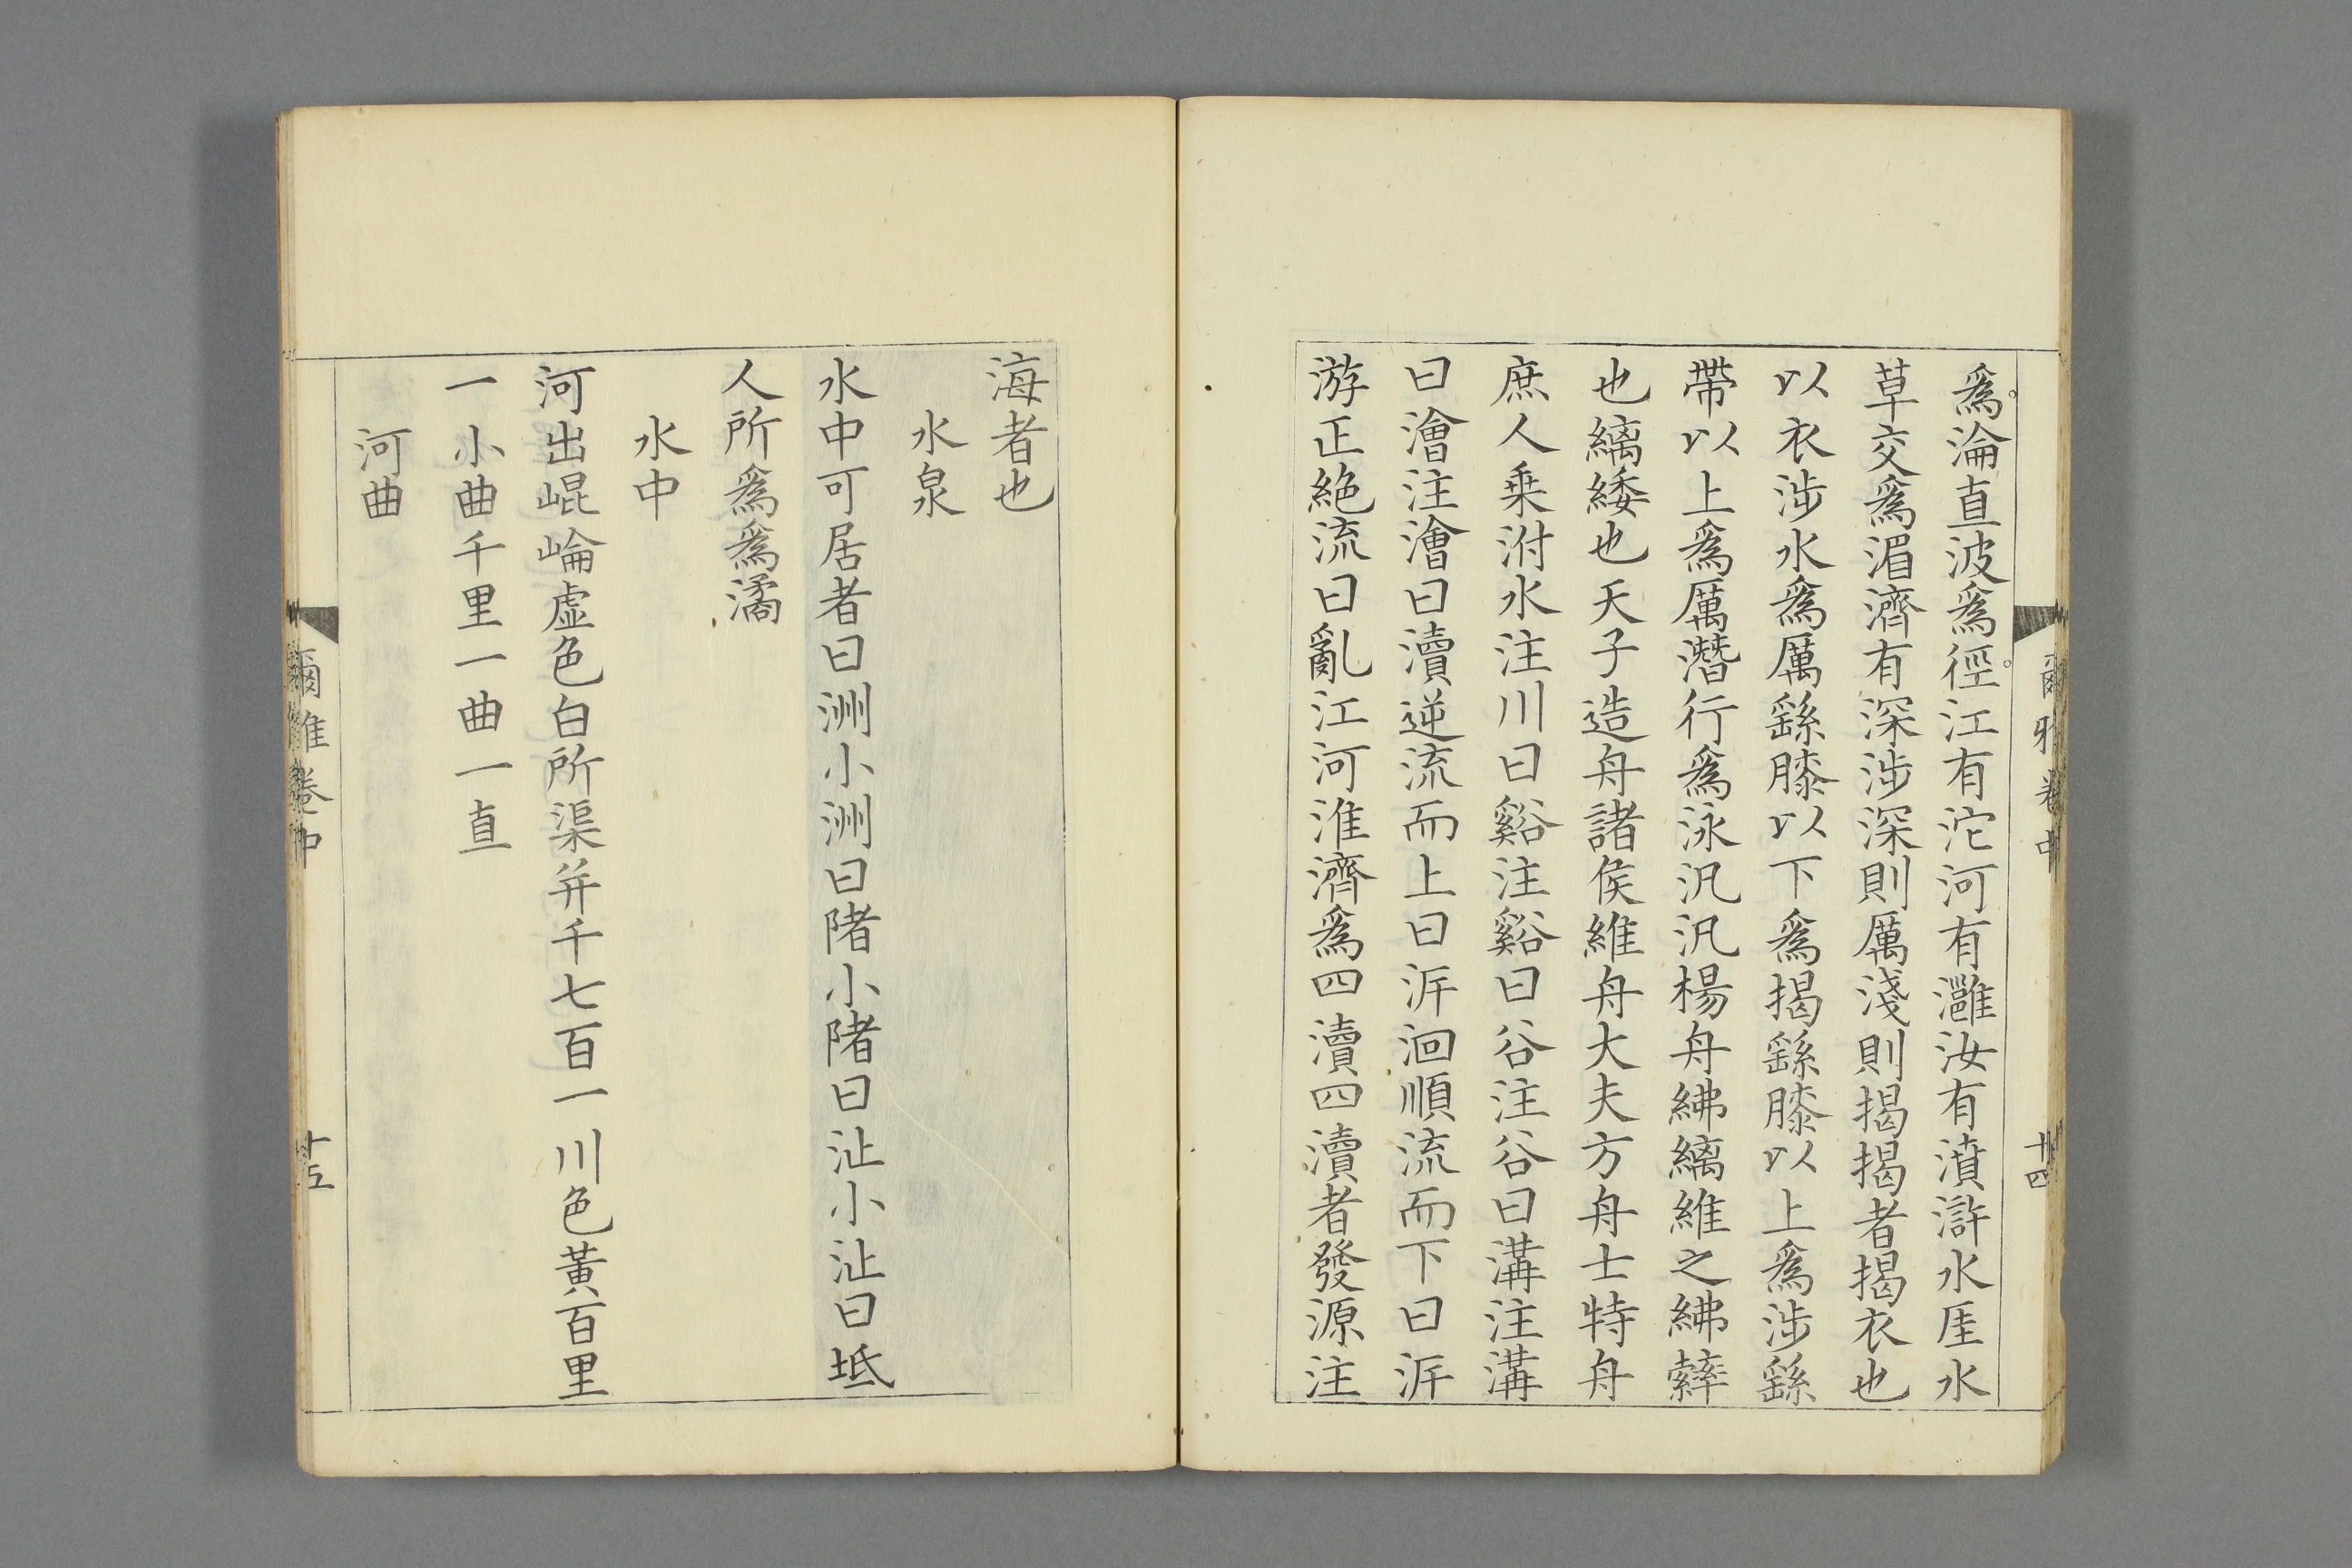 爾雅卷中
十四
爲淪直波爲徑江有沱河有灉汝有濆滸水厓水
草交爲湄濟有深涉深則厲淺則揭揭者揭衣也
以衣涉水爲厲繇膝以下爲揭繇膝以上爲涉繇
帶以上爲厲潛行爲泳汎汎楊舟紼縭維之紼䋫
也縭緌也天子造舟諸侯維舟大夫方舟士特舟
庶人乗泭水注川曰谿注谿曰谷注谷曰溝注溝
曰澮注澮曰瀆逆流而上曰泝洄順流而下曰泝
游正絶流曰亂江河淮濟爲四瀆四瀆者發源注
海者也
水泉
水中可居者曰洲小洲曰陼小陼曰沚小沚曰坻
人所爲爲潏
水中
河出崐崘虛色白所渠并千七百一川色黃百里
一小曲千里一曲一直
河曲
爾雅卷中
十五